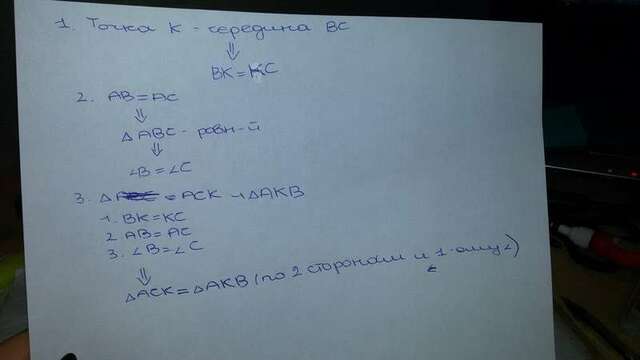 1. Точка K - середина BC
⇓
BK=KC
2. AB=AC
⇓
△ABC - равн-й
⇓
∠B=∠C
3. △ACK и △AKB
1. BK=KC
2 AB=AC
3. ∠B=∠C
⇓
△ACK=△AKB (по 2 сторонам и 1-ому ∠)